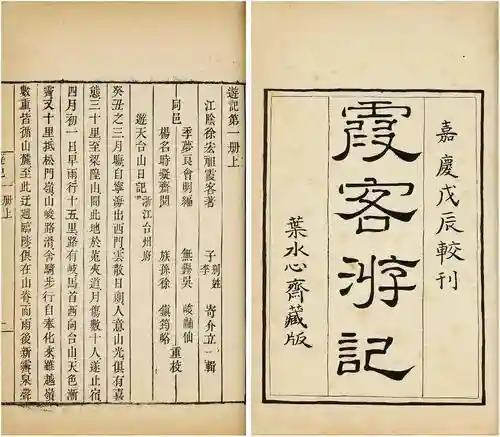 嘉慶戊辰較刊
霞客游記
葉水心齋藏版
遊記第一册上
江陰徐宏祖霞客著 子李別姓寄介立輯
同邑 季夢良會明編 無錫吳峻
楊名時凝齋閱 族孫徐鎮筠略 重校
遊天台山日記 浙江台州府
癸丑之三月晦自寧海出西門雲散日朗人意山光俱有喜
態三十里至梁隍山聞此地於菟夾道月傷數十人遂止宿
四月初一日早雨行十五里路有岐馬首西向台山天色漸
霽又十里抵松門嶺山峻路滑舍騎步行自奉化來雖越嶺
數重皆循山麓至此迂迴臨陟俱在山脊而雨後新霽泉聲